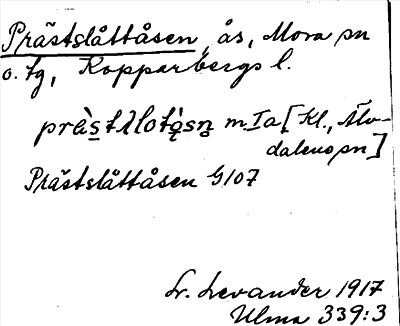 Prästslåttåsen, ås, Mora sn
o. tg, Kopparbergs l.
prɑ̀s̲tslotǫ̀sn̥ m. Ia [Kl., Älv-
dalens sn]
Prästslåttåsen G107
L. Levander 1917
Ulma 339:3